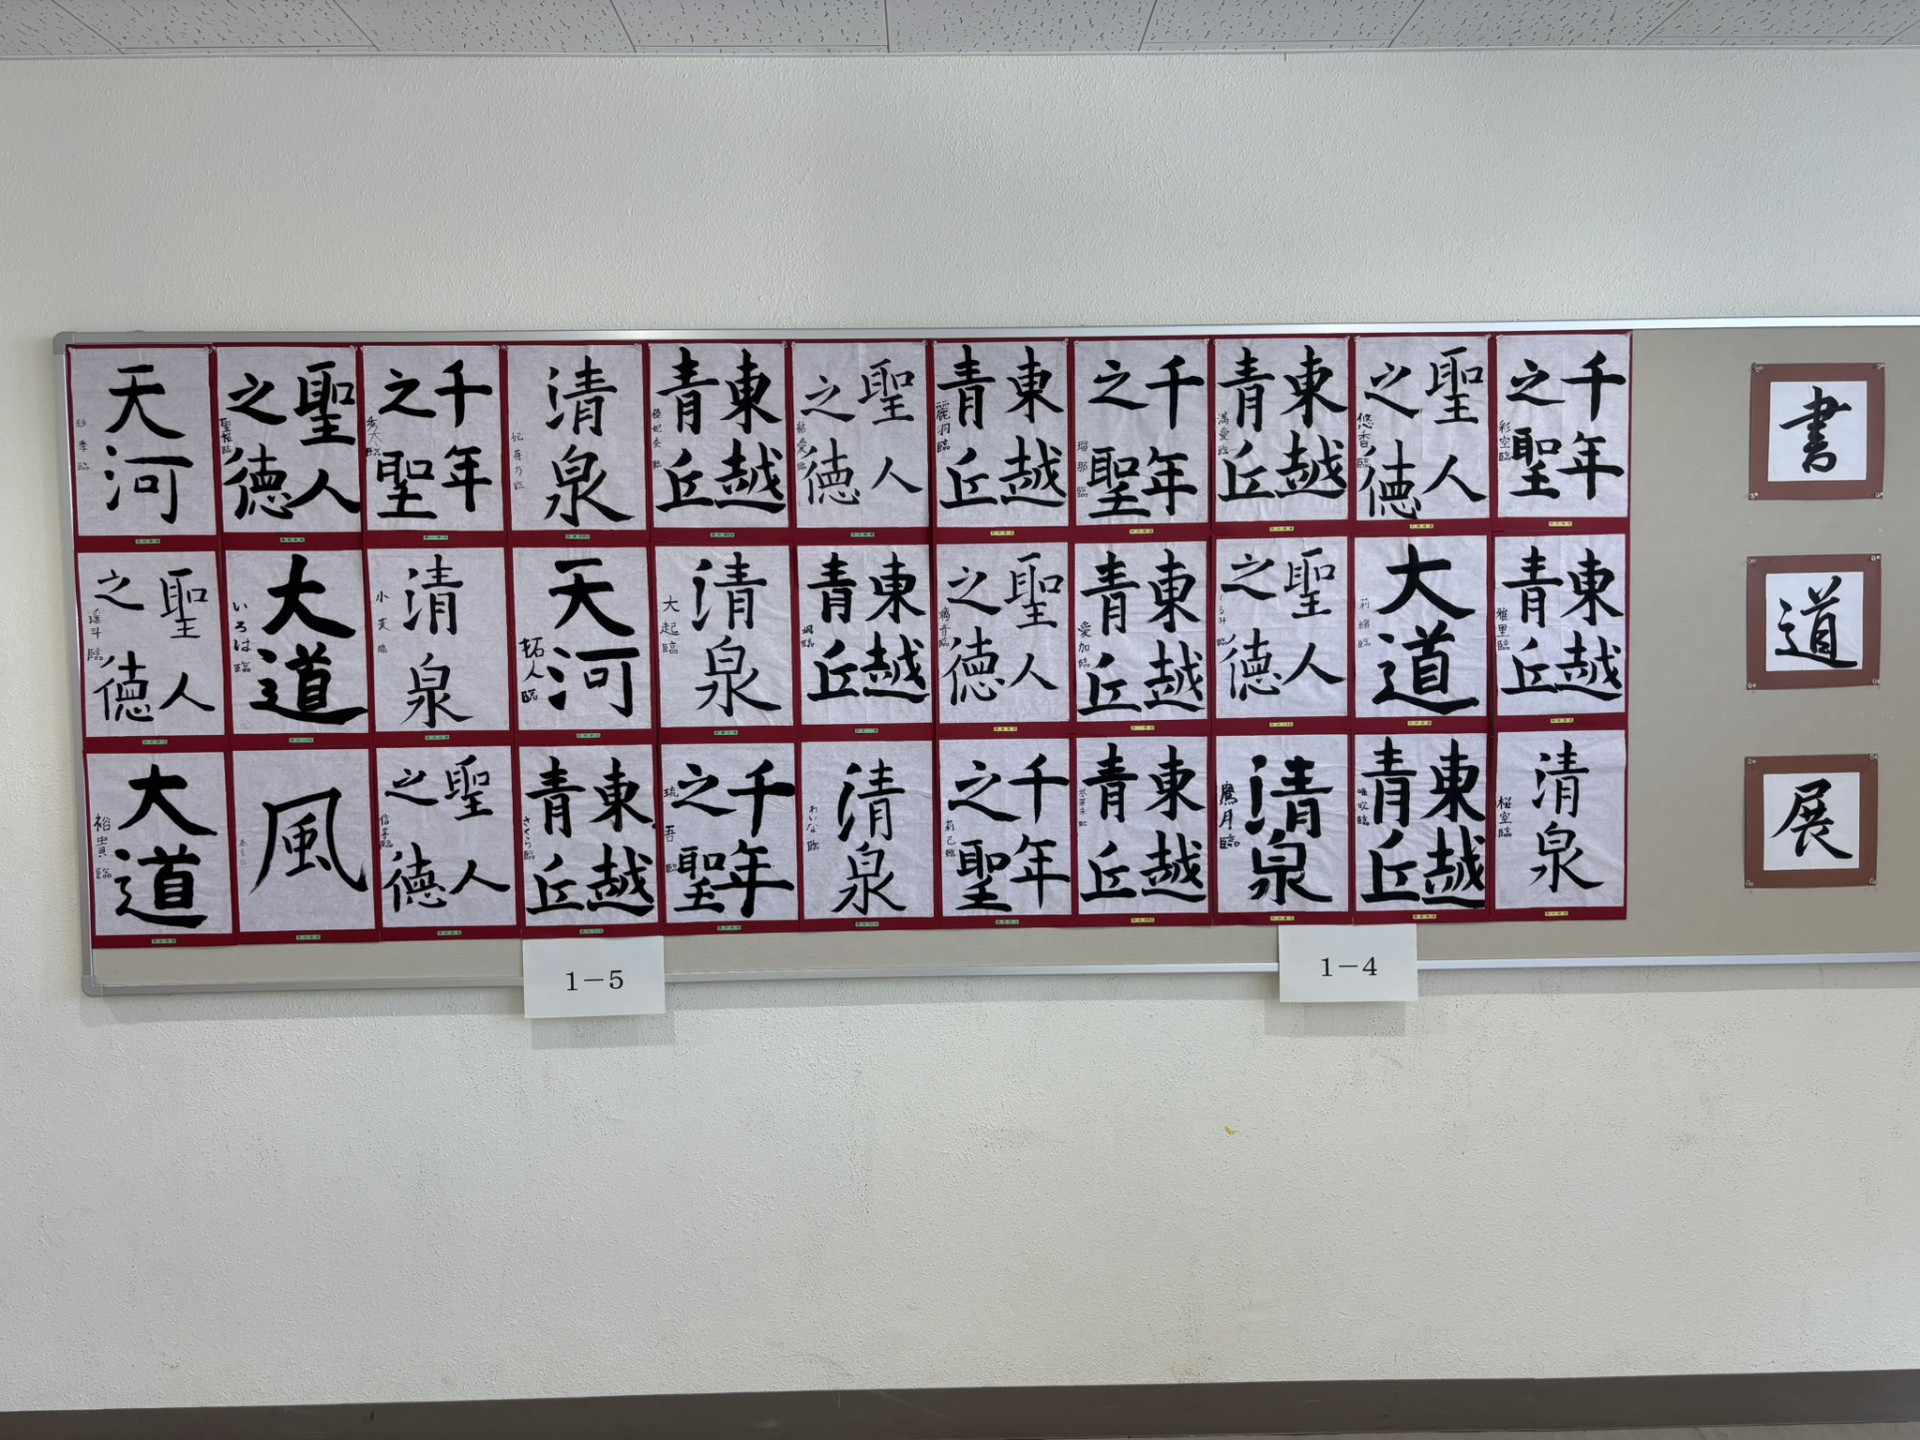 書
道
展
千年
之聖
彩空臨
聖人
之徳
悠香臨
東越
青丘
満愛臨
千年
之聖
瑠那臨
東越
青丘
麗羽臨
聖人
之徳
東越
青丘
清泉
千年
之聖
秀大臨
聖人
之徳
天河
紗季臨
東越
青丘
雅里臨
大道
莉緒臨
聖人
之徳
東越
青丘
愛加臨
聖人
之徳
東越
青丘
清泉
大起臨
天河
拓人臨
清泉
小芙臨
大道
いろは臨
聖人
之徳
瑶斗臨
清泉
桜空臨
東越
青丘
唯吹臨
清泉
鷹月臨
東越
青丘
千年
之聖
莉己臨
清泉
れいな臨
千年
之聖
琉吾臨
東越
青丘
さくら臨
聖人
之徳
風
大道
裕貴臨
1-5
1-4